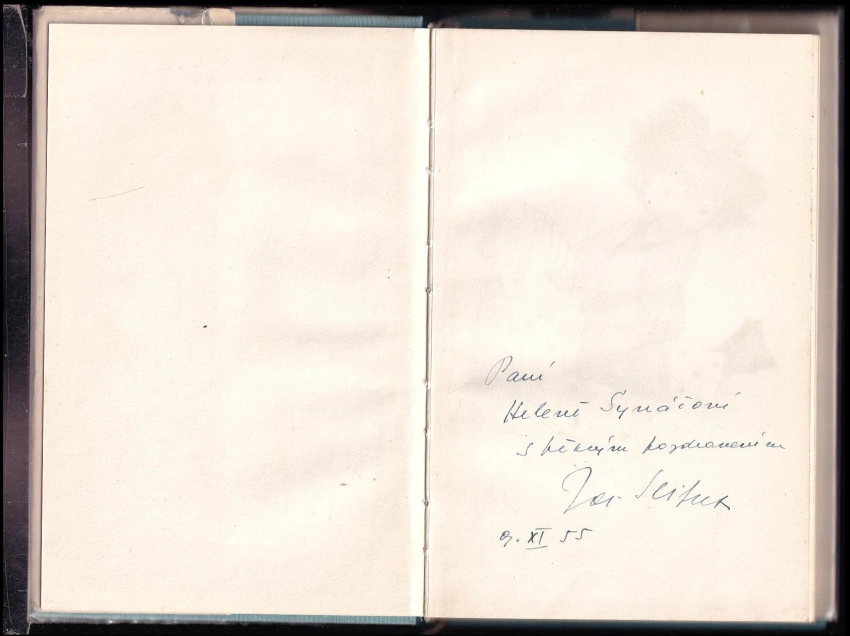 Paní
Heleně Synáčové
s pěkným pozdravením
Jar. Seifert
9. XI 55